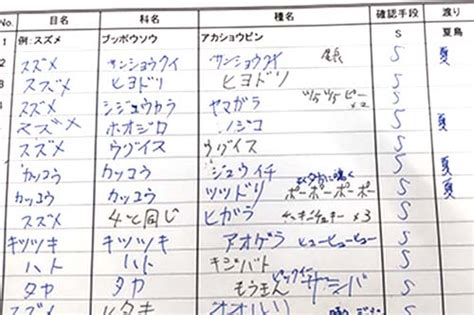 No. 目名 科名 種名 確認手段 渡り
1 例:スズメ ブッポウソウ アカショウビン S 夏鳥
2 スズメ サンショウクイ サンショウクイ S 夏
3 スズメ ヒヨドリ ヒヨドリ S
4 スズメ シジュウカラ ヤマガラ ツツピー ×2 S
スズメ ホオジロ ノジコ S 夏
スズメ ウグイス ウグイス S
カッコウ カッコウ ジュウイチ S 夏
カッコウ カッコウ ツツドリ ポーポーポーポー S 夏
スズメ 4と同じ ヒガラ ×3 S
キツツキ キツツキ アオゲラ ヒューヒューヒュー S
ハト ハト キジバト S
タカ タカ サシバ S 夏
スズメ